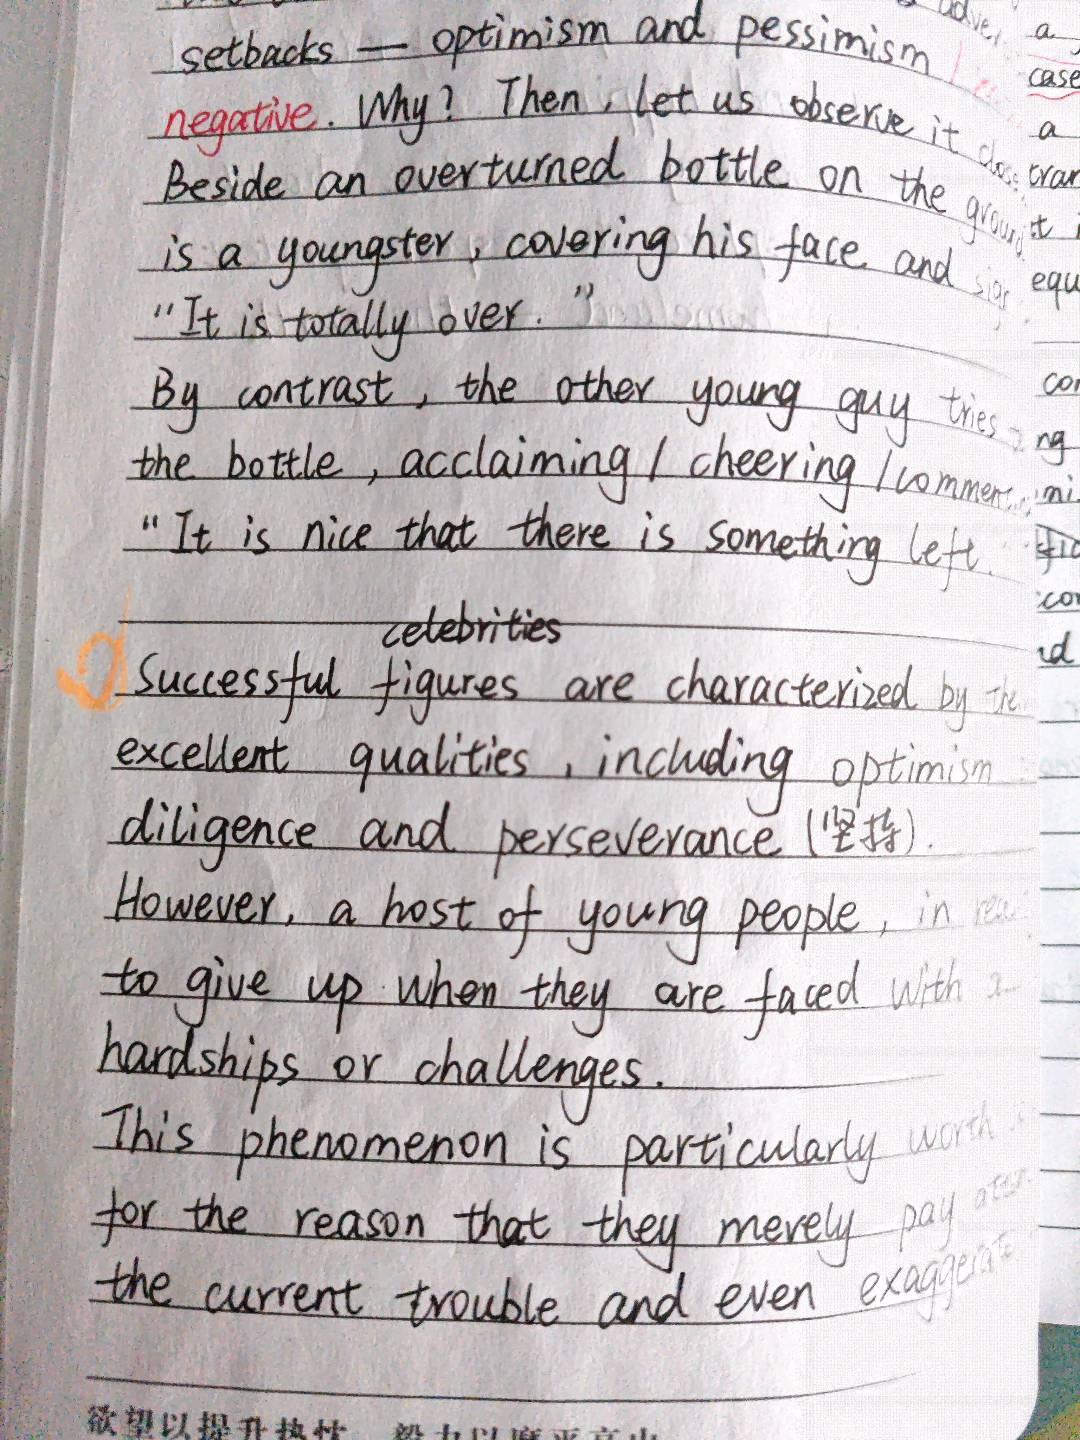 setbacks — optimism and pessimism
negative. Why? Then, let us observe it
Beside an overturned bottle on the ground
is a youngster, covering his face and
"It is totally over. "
By contrast, the other young guy tries
the bottle, acclaiming / cheering /
"It is nice that there is something left.
celebrities
Successful figures are characterized by the
excellent qualities, including optimism
diligence and perseverance (坚持).
However, a host of young people, in
to give up when they are faced with
hardships or challenges.
This phenomenon is particularly worth
for the reason that they merely pay
the current trouble and even exaggerate
a
case
a
equ
ng